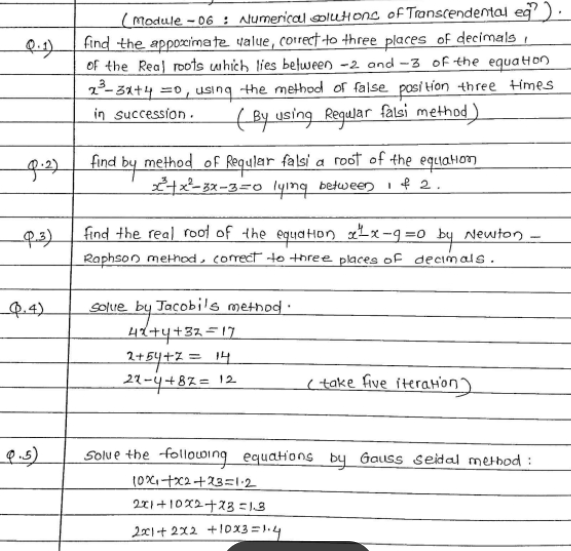 (Module - 06 : Numerical solutions of Transcendental eqⁿ).
Q.1) find the appoximate value, correct to three places of decimals,
of the Real roots which lies between -2 and -3 of the equation
x³-3x+4 =0, using the method of false position three times
in succession. (By using Regular falsi method)
Q.2) find by method of Regular falsi a root of the equation
x³+x²-3x-3=0 lying between 1 & 2.
Q.3) find the real root of the equation x⁴-x-9=0 by Newton -
Raphson method, correct to three places of decimals.
Q.4) solve by Jacobi's method.
4x+y+3z=17
x+5y+z = 14
2x-y+8z= 12 (take five iteration)
Q.5) solve the following equations by Gauss seidal method :
10x1+x2+x3=1.2
2x1+10x2+x3=1.3
2x1+2x2 +10x3=1.4